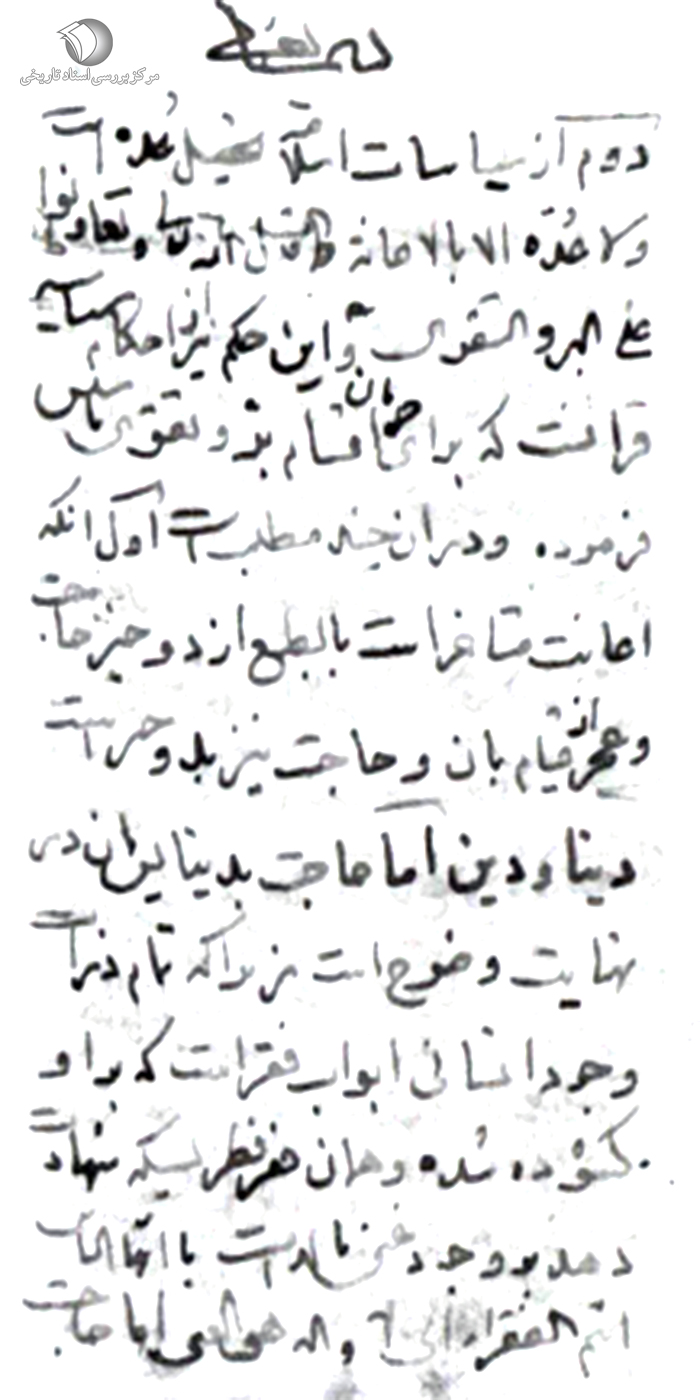 مرکز بررسی اسناد تاریخی
دوم از سیاسات اسلام تحصیل عُده است
ولا عُدّه الا بالاعانة قال الله تعالی وتعاونوا
علی البر و التقوی و این حکم نیز از احکام سیاسیه
قرانست که برای همان اقسام بر و تقوی تاسیس
فرموده و در ان چند مطلب است اول انکه
اعانت متاخر است بالطبع از دو چیز حاجت
و عجز از قیام بان و حاجت نیز بدو جز است
دینا و دین اما حاجت بدینا پس ان در
نهایت وضوح است زیرا که تمام ذرات
وجود انسانی ابواب فقر است که بر او
کشوده شده و همان فقر فطریست که شهادت
دهد بوجود غنی بالذات یا ایها الناس
انتم الفقراء الی الله و الله هو الغنی اما حاجت